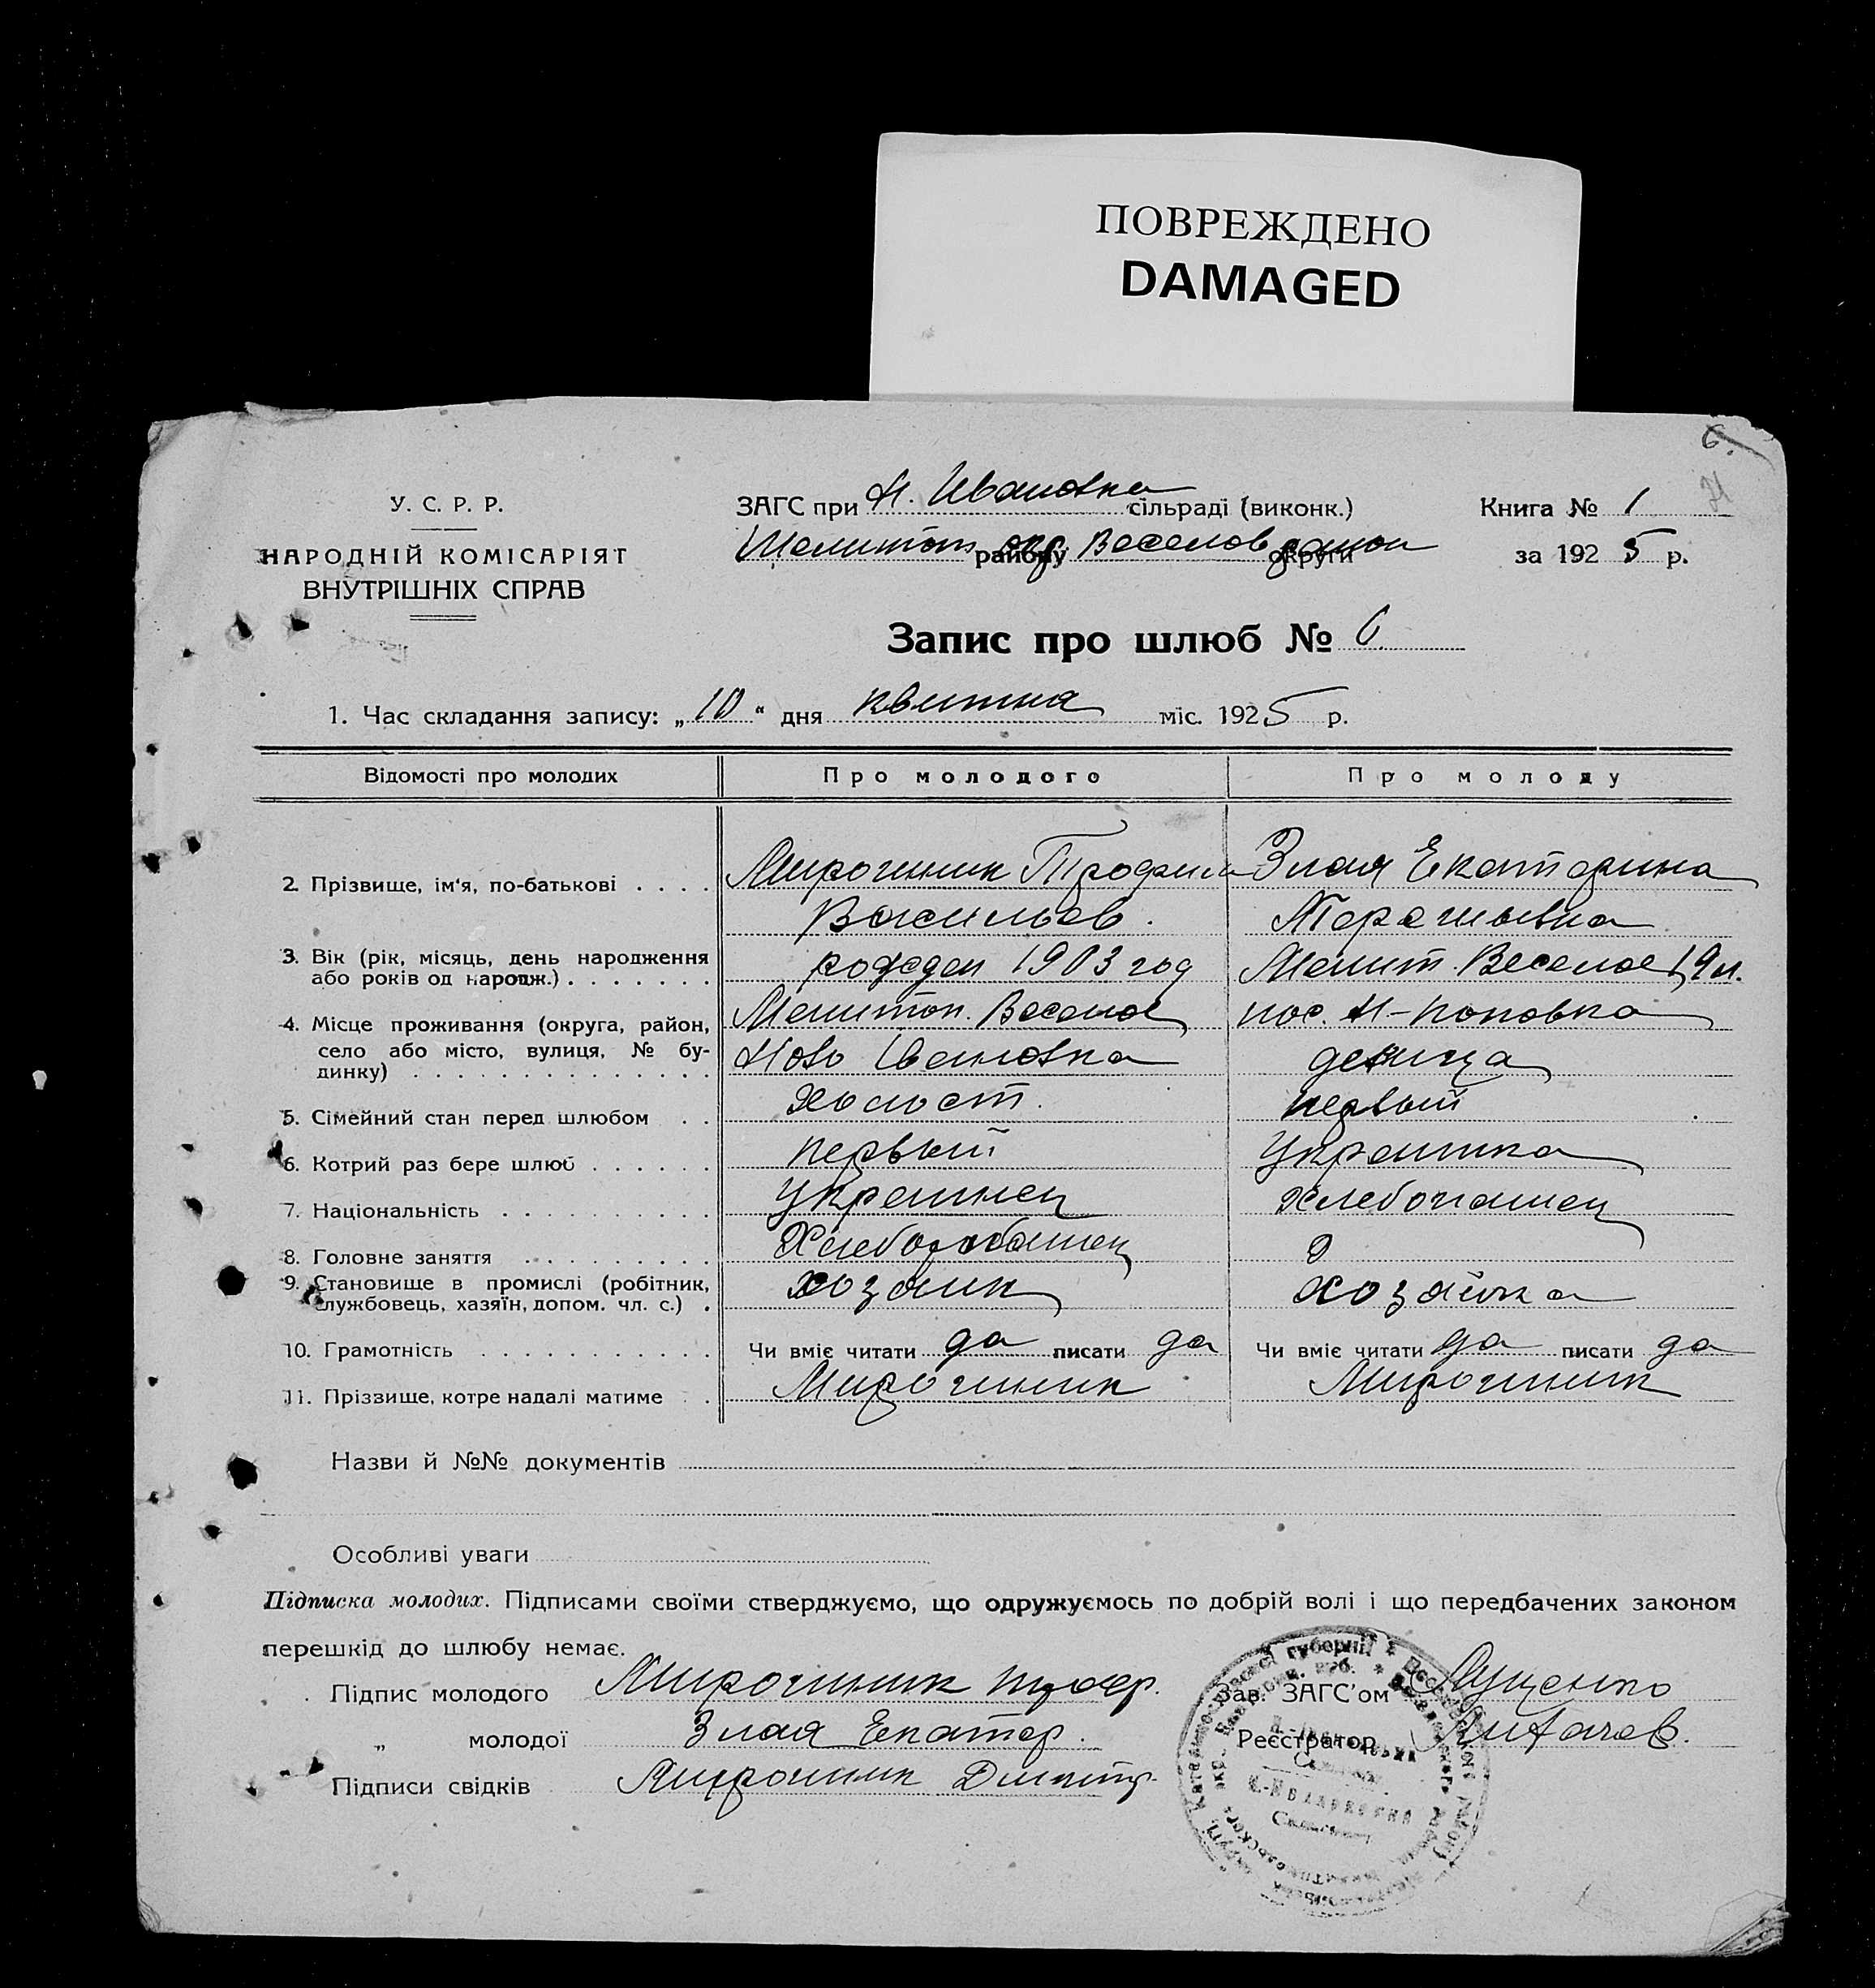 ПОВРЕЖДЕНО
DAMAGED
6.
У. С. Р. Р.
НАРОДНІЙ КОМІСАРІЯТ
ВНУТРІШНІХ СПРАВ
ЗАГС при Н. Ивановка сільраді (виконк.)
Мелитоп. окр. району Веселов району округи
Книга № 1
за 1925 р.
Запис про шлюб № 6.
1. Час складання запису: „10“ дня квитня міс. 1925 р.
Відомості про молодих Про молодого Про молоду
2. Прізвище, ім'я, по-батькові . . . . Мирошник Трофим Злая Екатерина
Васильев.
3. Вік (рік, місяць, день народження або років од народж.) . . . . . . . рожден 1903 год Мелит. Веселое 19 л.
4. Місце проживання (округа, район, село або місто, вулиця, № будинку) . . . . . . . . . . . . . . Мелитоп. Веселое пос. Н-Поповка
Ново Ивановка девица
5. Сімейний стан перед шлюбом . . Холост. первый
6. Котрий раз бере шлюб . . . . . . первый Украинка
7. Національність . . . . . . . . . . Украинец Хлебопашец
8. Головне заняття . . . . . . . . .
9. Становище в промислі (робітник, службовець, хазяїн, допом. чл. с.) . хозяин хозяйка
10. Грамотність . . . . . . . . . . . Чи вміє читати да писати да Чи вміє читати да писати да
11. Прізвище, котре надалі матиме . . Мирошник Мирошник
Назви й №№ документів
Особливі уваги
Підписка молодих. Підписами своїми стверджуємо, що одружуємось по добрій волі і що передбачених законом
перешкід до шлюбу немає.
Підпис молодого Мирошник Троф.
„ молодої Злая Екатер.
Підписи свідків Мирошник Дмитр.
Зав. ЗАГС'ом Луценко
Реєстратор